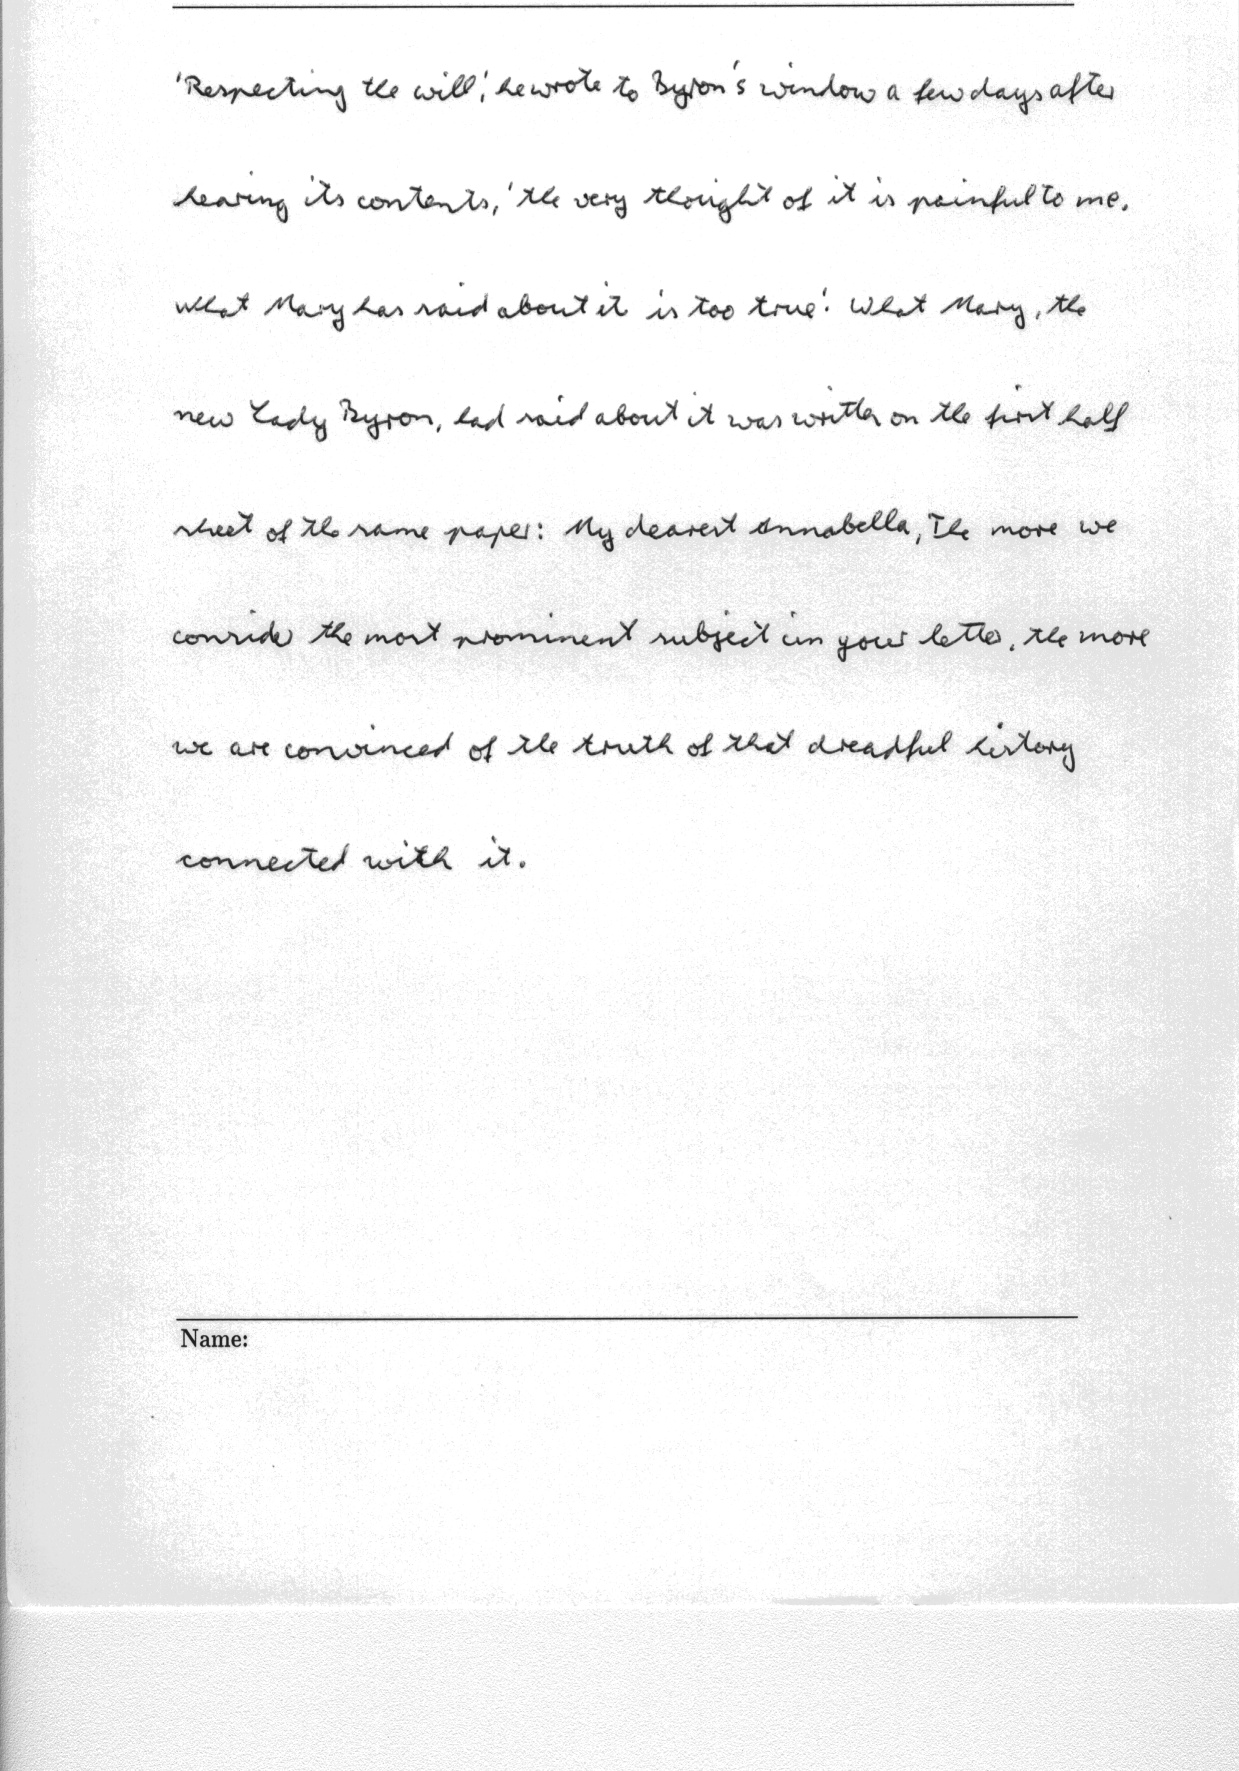 'Respecting the will,' he wrote to Byron's window a few days after
hearing its contents, 'the very thought of it is painful to me.
What Mary has said about it is too true'. What Mary, the
new Lady Byron, had said about it was written on the first half
sheet of the same paper: My dearest Annabella, The more we
consider the most prominent subject in your letter, the more
we are convinced of the truth of that dreadful history
connected with it.
Name: